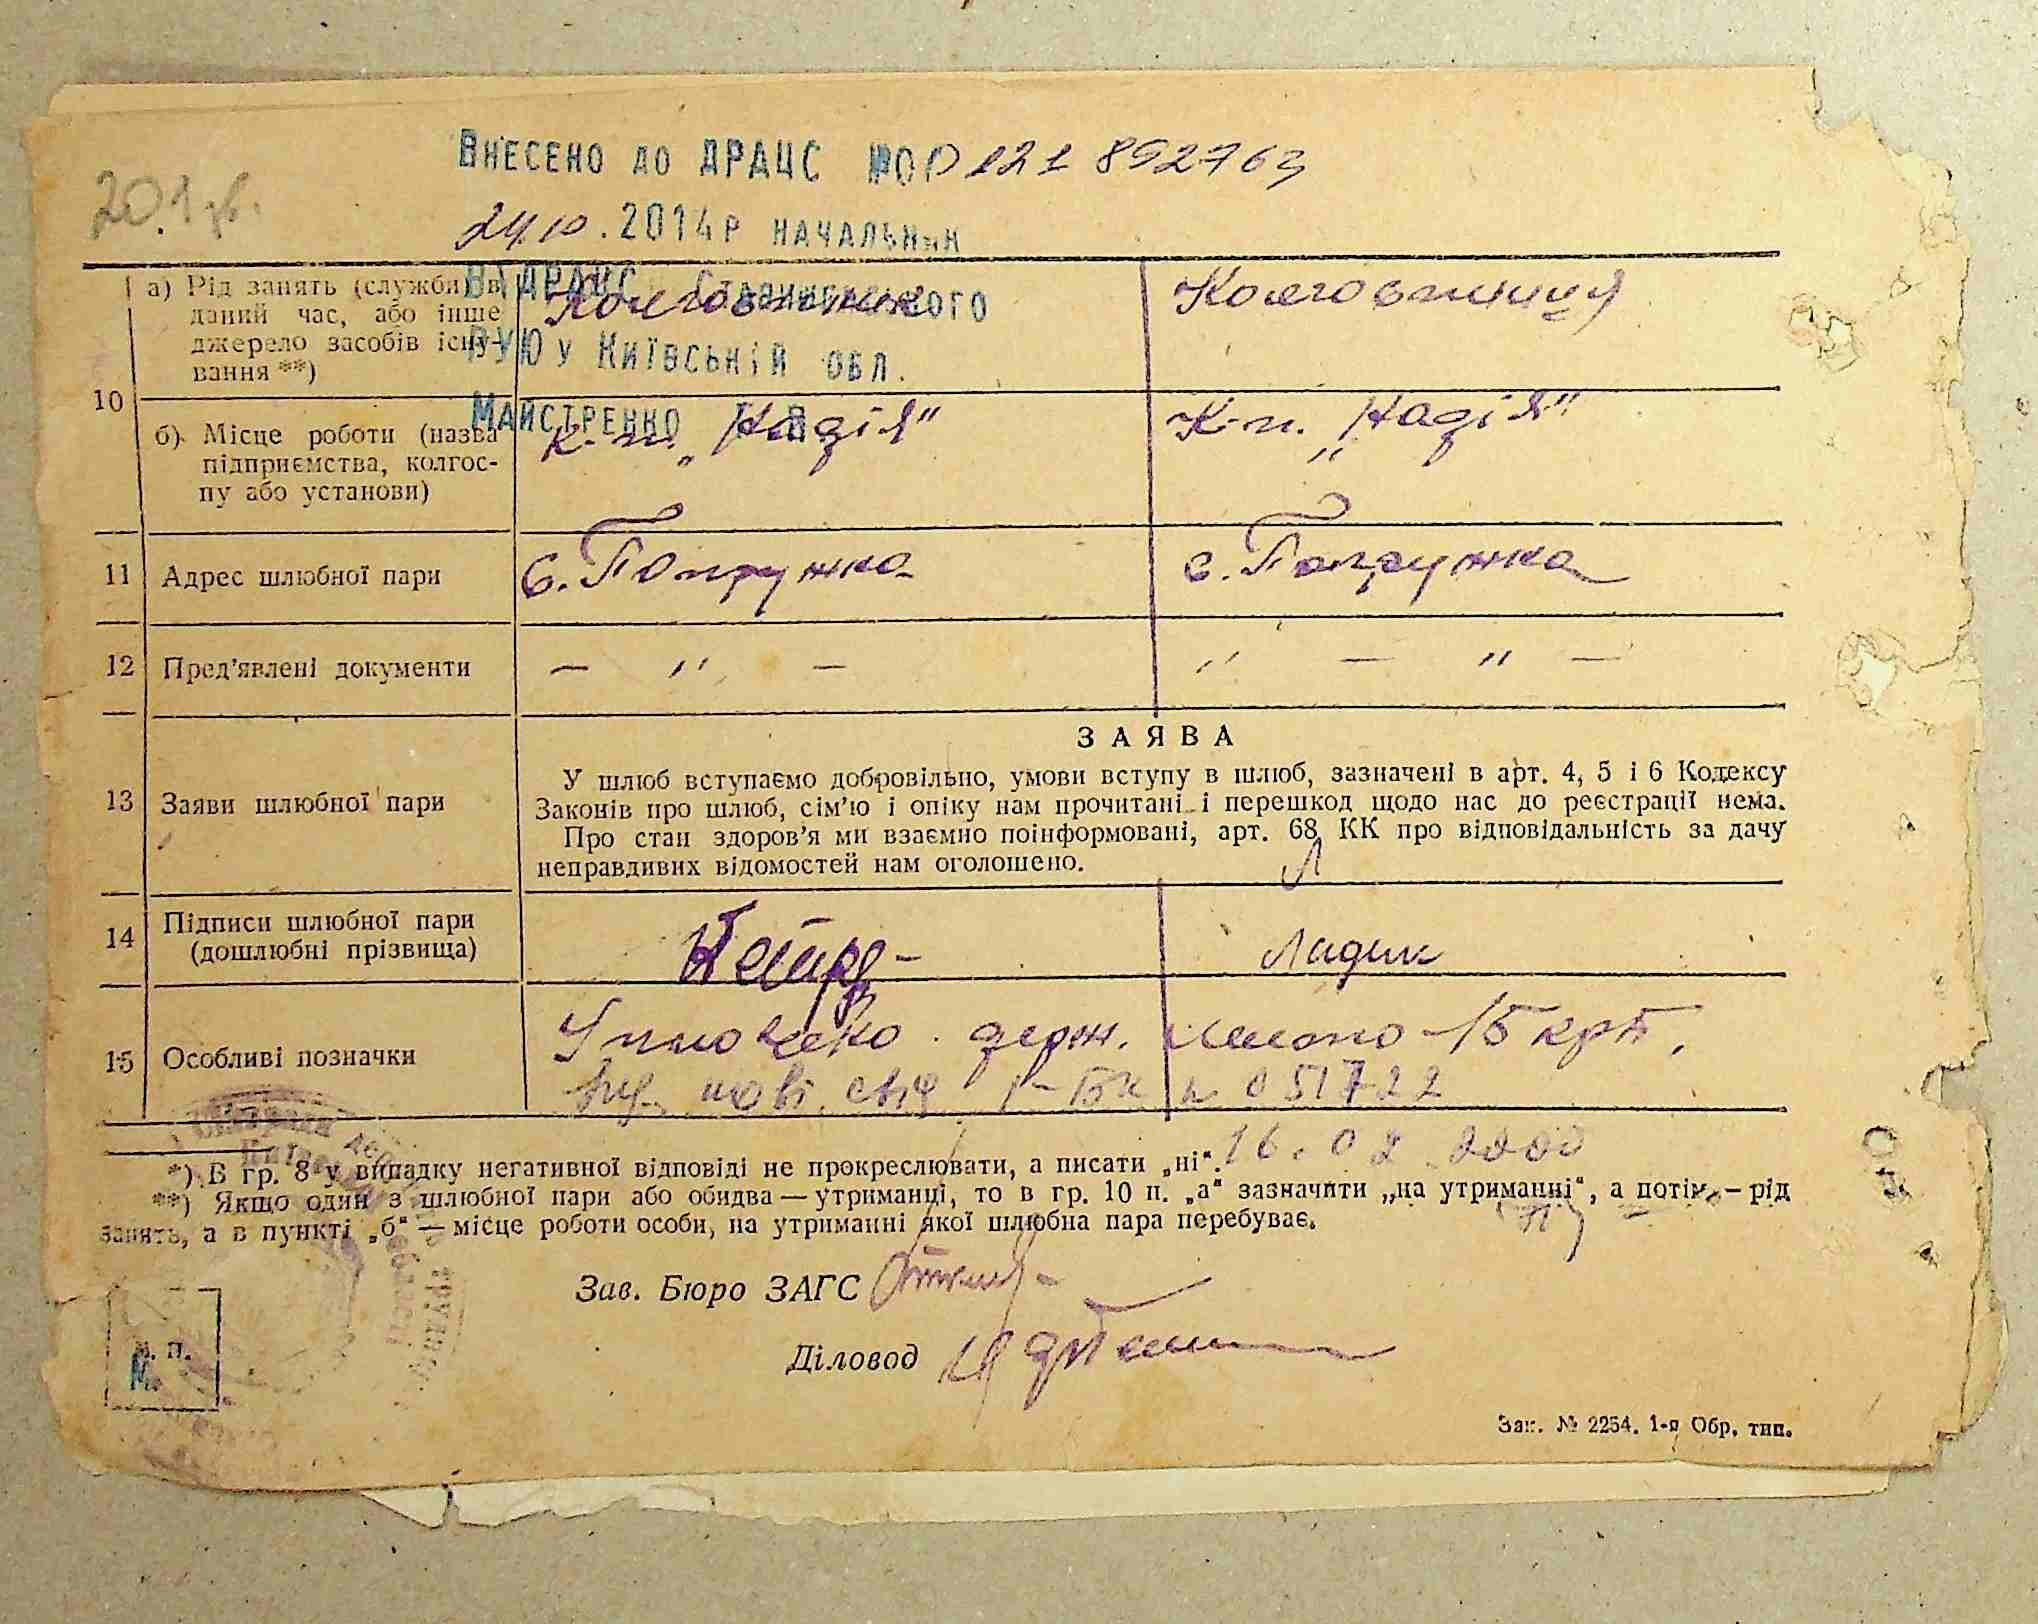 Внесено до ДРАЦС №00121892763
24.10.2014р начальник
ВДРАЦС Ставищенського
РУЮ у Київській обл.
Майстренко
20.1
10
а) Рід занять (служби) в
даний час, або інше
джерело засобів існу-
вання **)
Колгоспник
Колгоспниця
б) Місце роботи (назва
підприємства, колгос-
пу або установи)
К-п. „Надія"
К-п. „Надія"
11 Адрес шлюбної пари
с. Попружна
с. Попружна
12 Пред'явлені документи
— " —
" — " —
13 Заяви шлюбної пари
ЗАЯВА
У шлюб вступаємо добровільно, умови вступу в шлюб, зазначені в арт. 4, 5 і 6 Кодексу
Законів про шлюб, сім'ю і опіку нам прочитані і перешкод щодо нас до реєстрації нема.
Про стан здоров'я ми взаємно поінформовані, арт. 68 КК про відповідальність за дачу
неправдивих відомостей нам оголошено.
14 Підписи шлюбної пари
(дошлюбні прізвища)
Ладик
15 Особливі позначки
держ. мито 15 крб.
І-БК № 051722
16.02.2000
*) В гр. 8 у випадку негативної відповіді не прокреслювати, а писати „ні".
**) Якщо один з шлюбної пари або обидва — утриманці, то в гр. 10 п. „а" зазначити „на утриманні", а потім — рід
занять, а в пункті „б" — місце роботи особи, на утриманні якої шлюбна пара перебуває.
Зав. Бюро ЗАГС
Діловод
М. П.
Зак. № 2254. 1-я Обр. тип.